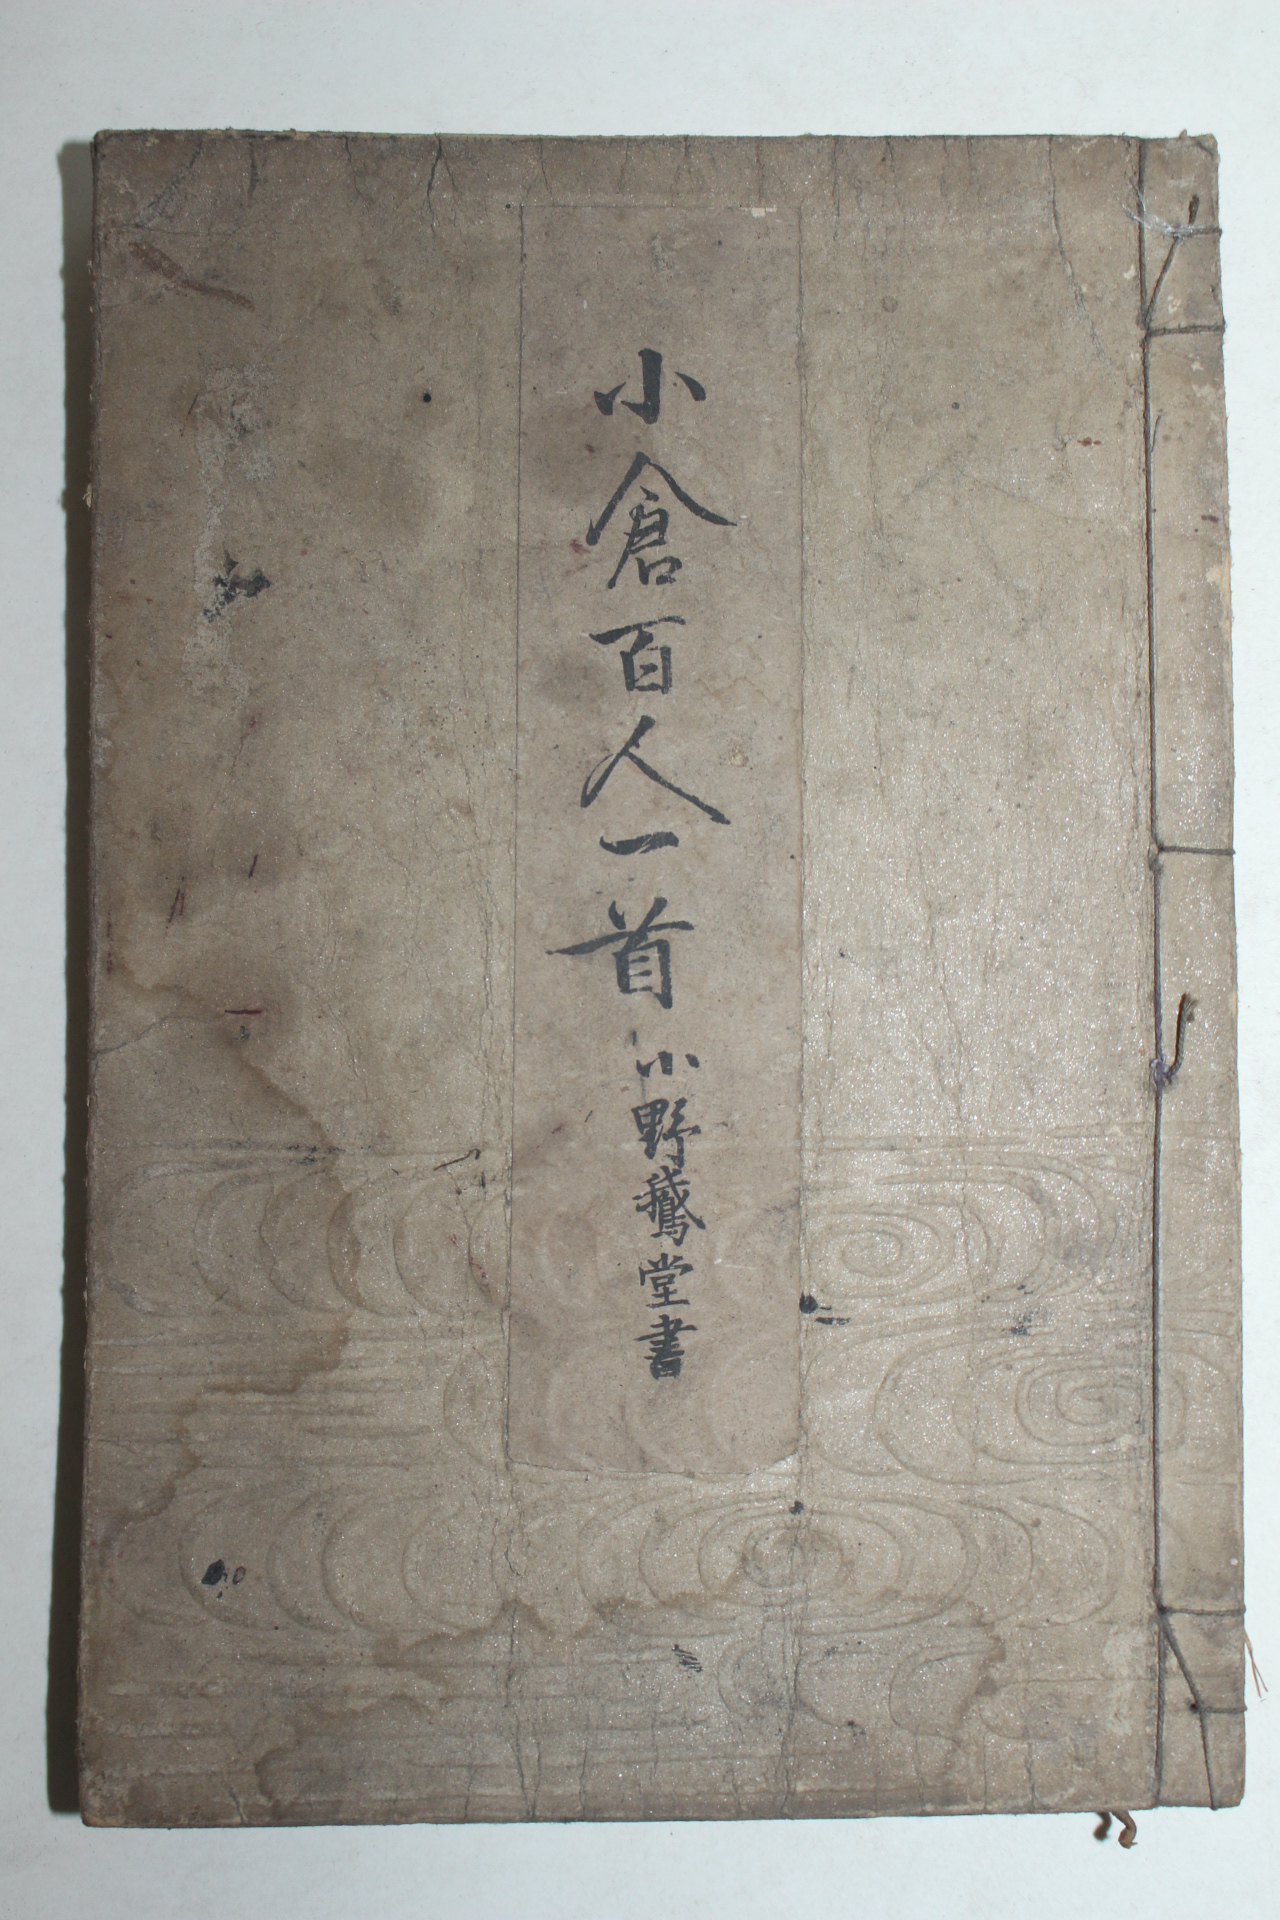 小倉百人一首
小野鵞堂書